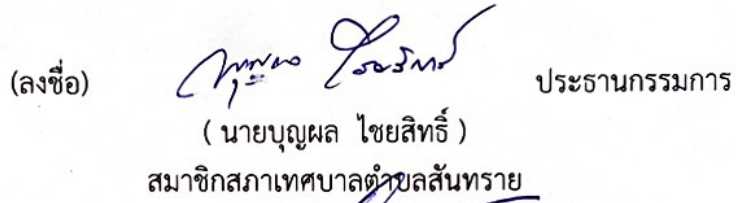 (ลงชื่อ) ประธานกรรมการ
( นายบุญผล ไชยสิทธิ์ )
สมาชิกสภาเทศบาลตำบลสันทราย